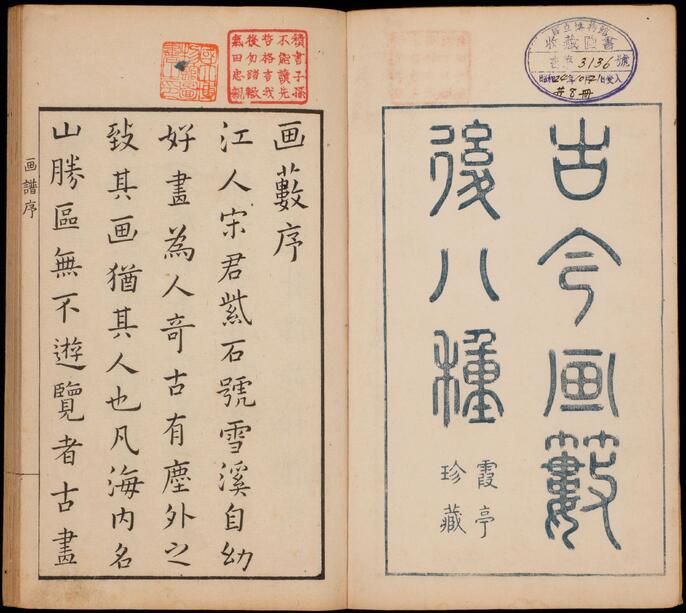 古今画藪
後八種
霞亭
珍藏
収藏図書
3136號
共8冊
積書子孫
不能讀先
哲格言我
後勿踏轍
氣田忠嗣
画藪序
江人宋君紫石號雪溪自幼
好畫為人奇古有塵外之
致其画猶其人也凡海内名
山勝區無不遊覽者古畫
画譜序